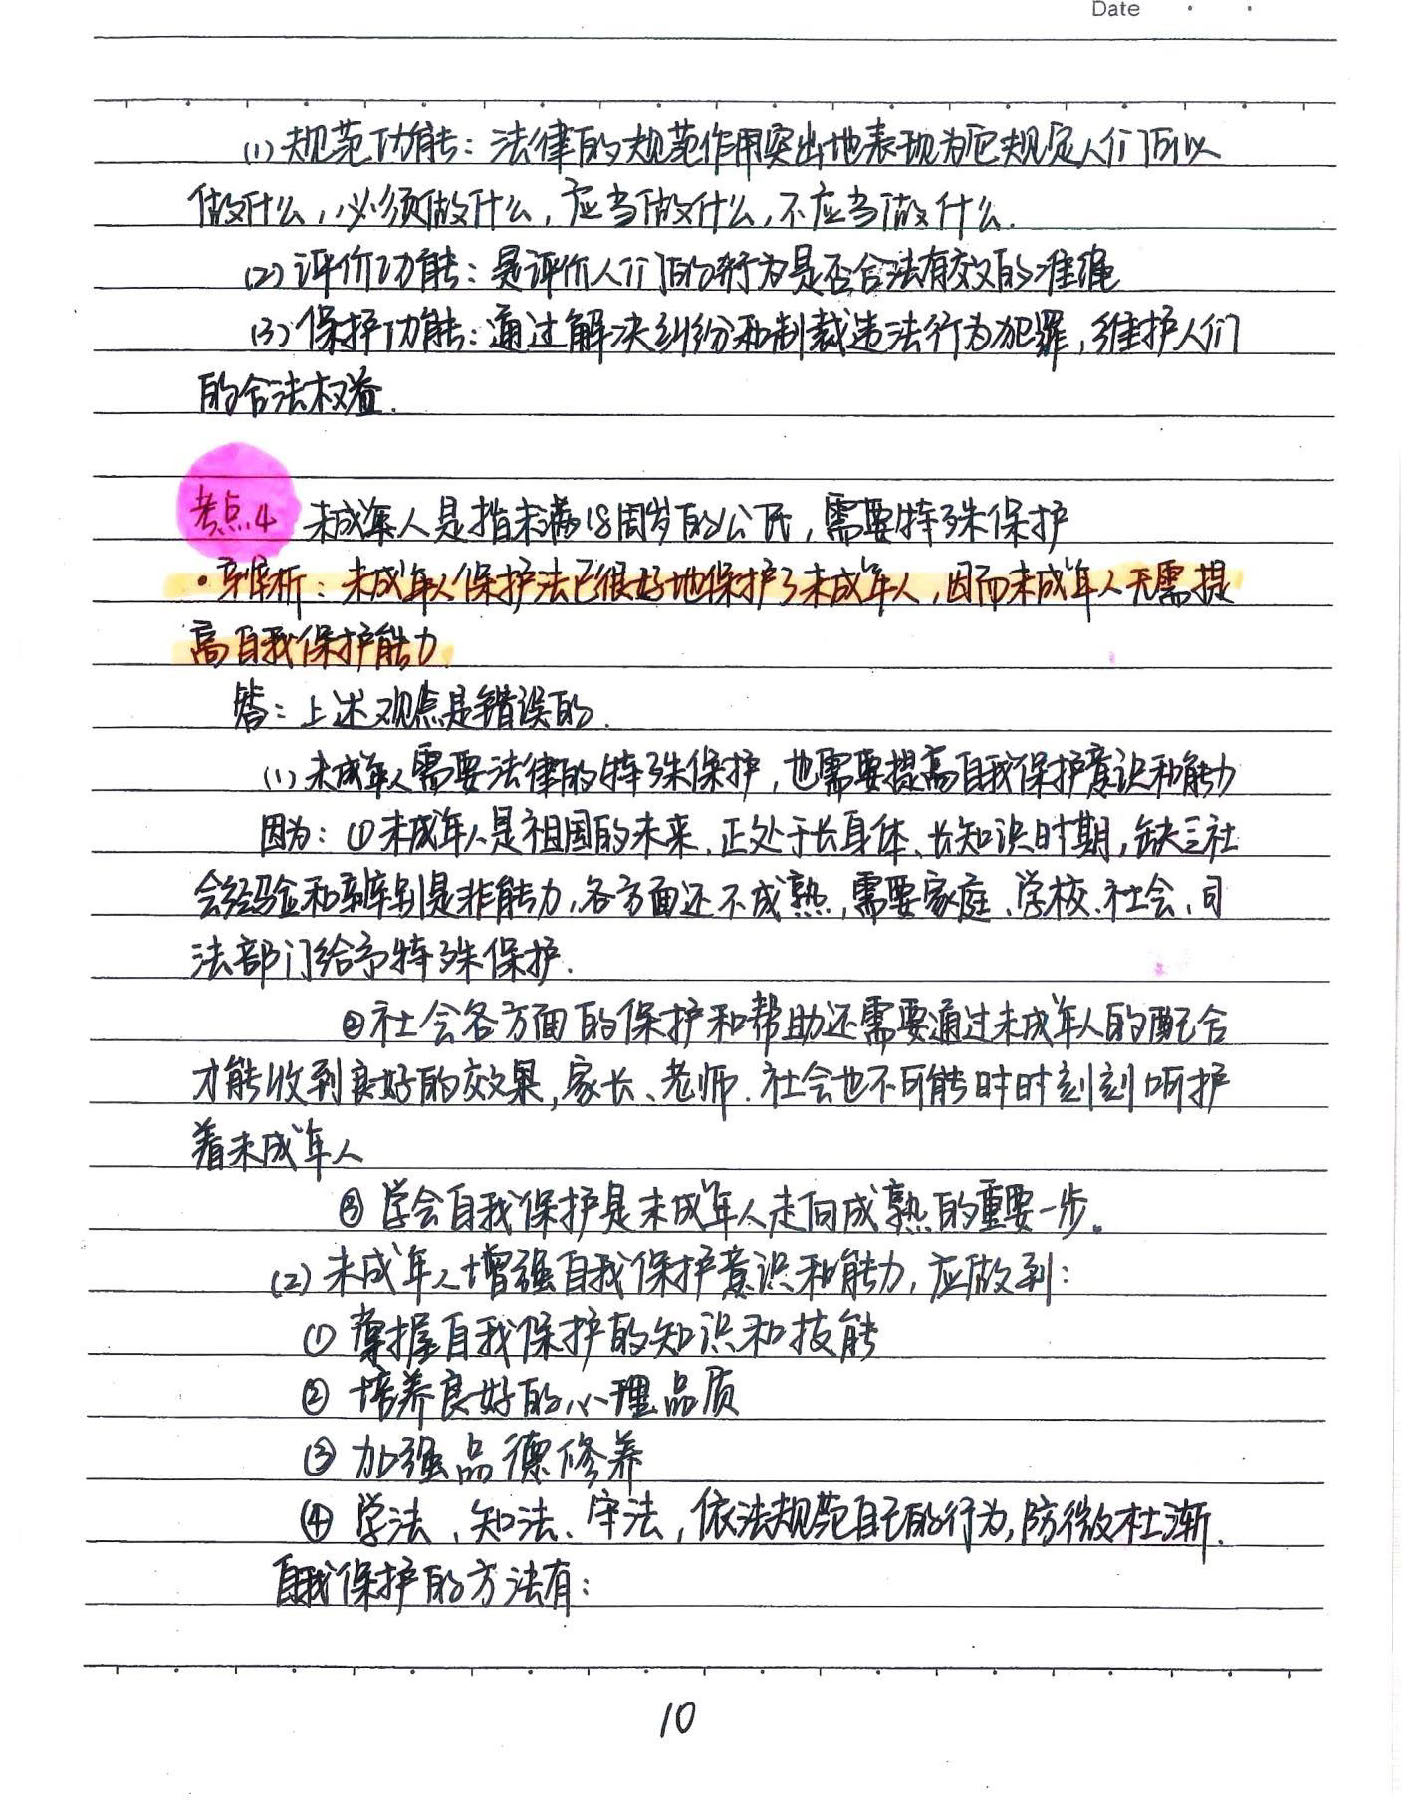 Date
(1) 规范功能：法律的规范作用突出地表现为它规定人们可以
做什么，必须做什么，应当做什么，不应当做什么.
(2) 评价功能：是评价人们的行为是否合法有效的准绳
(3) 保护功能：通过解决纠纷和制裁违法行为犯罪，维护人们
的合法权益.
考点4 未成年人是指未满18周岁的公民，需要特殊保护
·辨析：未成年人保护法已很好地保护了未成年人，因而未成年人无需提
高自我保护能力.
答：上述观点是错误的.
(1) 未成年人需要法律的特殊保护，也需要提高自我保护意识和能力
因为：①未成年人是祖国的未来，正处于长身体、长知识时期，缺乏社
会经验和辨别是非能力，各方面还不成熟，需要家庭、学校、社会、司
法部门给予特殊保护.
②社会各方面的保护和帮助还需要通过未成年人的配合
才能收到良好的效果，家长、老师、社会也不可能时时刻刻呵护
着未成年人
③ 学会自我保护是未成年人走向成熟的重要一步。
(2) 未成年人增强自我保护意识和能力，应做到：
① 掌握自我保护的知识和技能
② 培养良好的心理品质
③ 加强品德修养
④ 学法、知法、守法，依法规范自己的行为，防微杜渐.
自我保护的方法有：
10